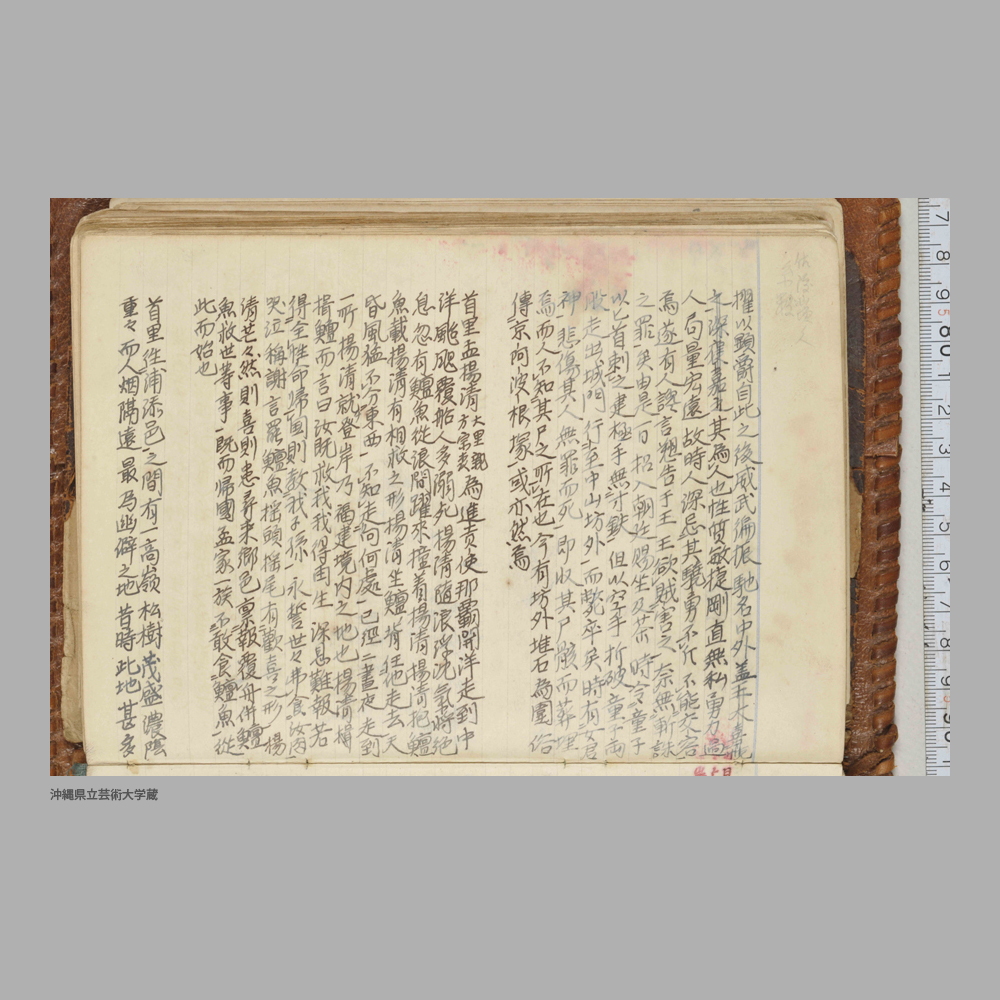 擢以顕爵自此之後威武徧振馳名中外蓋于大喜哉
之深僕嘉其為人也性憤敏捷剛直無私勇力高
人局量宏遠故時人深忌其驍勇不凡不能久容
焉遂有人讒言想告于王王欲賊害之奈無斬誅
之罪矣由是一日招入朝廷賜坐及茶時令童子
以匕首刺之建極手無寸鉄但以空手折破童子両
股走出城門行至中山坊外而斃卒矣時有
神悲傷其人無罪而死即收其尸骸而葬埋
焉而人不知其尸之所在也今有坊外堆石為圍俗
傳京阿波根塚或亦然焉
首里孟揚清大里親方宗森為進貢使那覇開洋走到中
洋颱颶覆船人多溺死揚清随浪浮沈氣将絶
息忽有鱣魚從浪間躍來撞着揚清揚清抱鱣
魚載揚清有相救之形揚清坐鱣背狂他走去天
昏風猛不分東西不知走向何處已經二晝夜走到
一所揚清就登岸乃福建境内之地也揚清撐
揖鱣而言曰汝既救我我得再生深恩難報若
得全性命帰国則教我子孫永誓世々弗食汝肉
哭泣稱謝言罷鱣魚揺頭揺尾有歡喜之形揚
清茫々然則喜則患尋来鄉邑禀報覆舟併鱣
魚救世等事既而帰國孟家一族不敢食鱣魚從
此而始也
首里徃浦添邑之間有一高嶺松樹茂盛濃陰
重々而人烟隔遠最為幽僻之地昔時此地甚多
沖縄県立芸術大学蔵
7 8 9 80 1 2 3 4 5 6 7 8 9 90